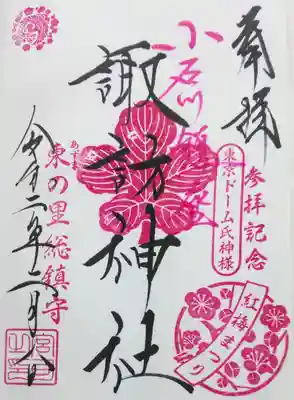 奉拝
参拝記念
東京ドーム氏神様
小石川鎮護
諏訪神社
あずま
東の里総鎮守
令和二年二月八日
紅梅まつり